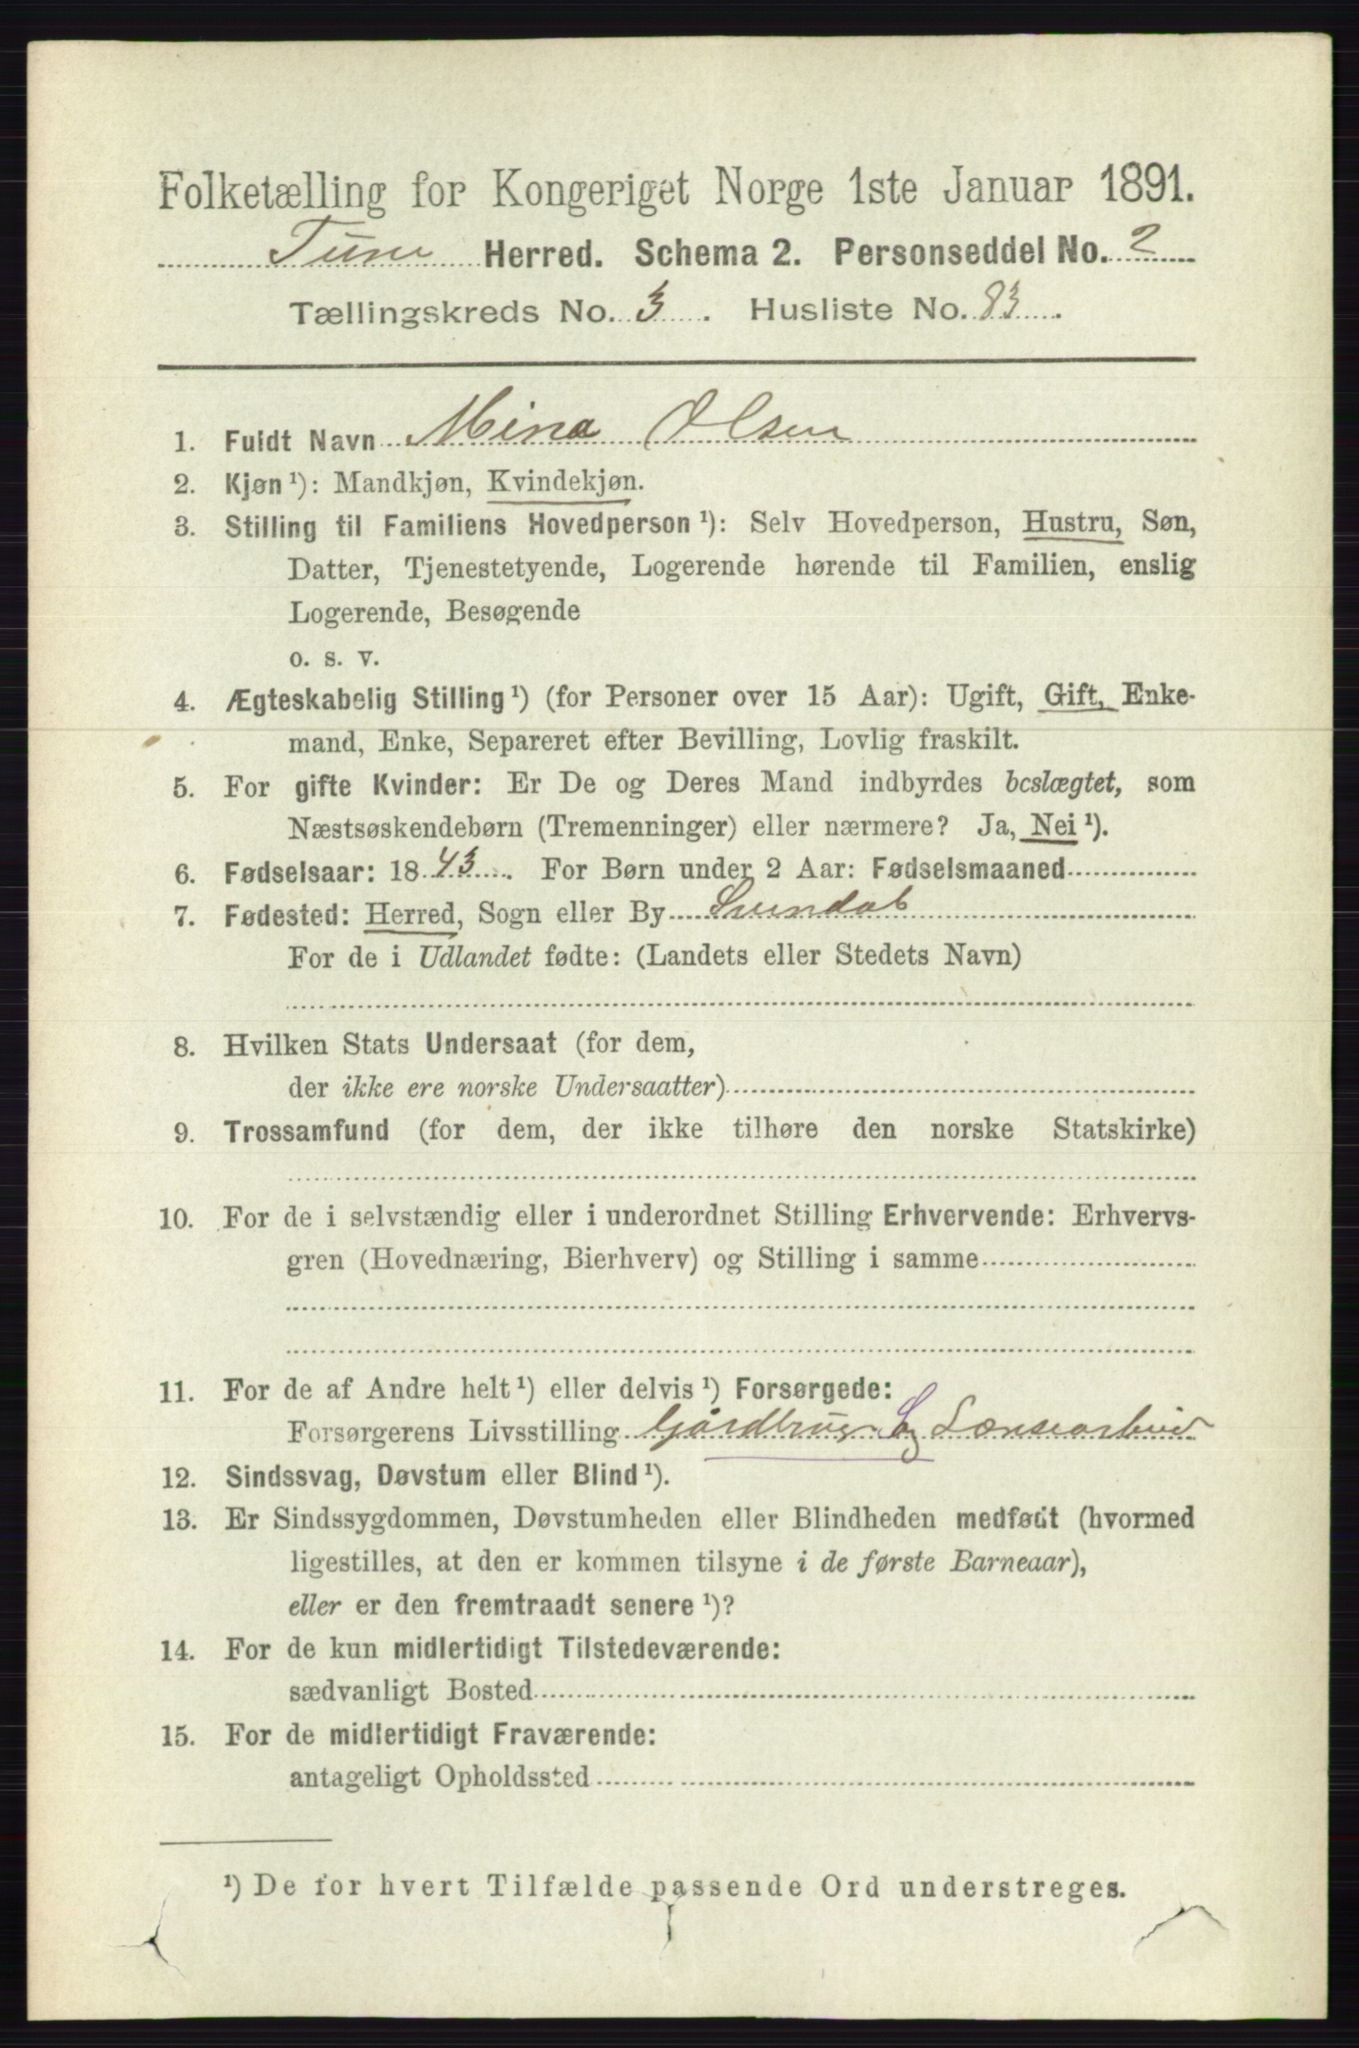 Folketælling for Kongeriget Norge 1ste Januar 1891.
Tune Herred. Schema 2. Personseddel No. 2
Tællingskreds No. 3. Husliste No. 83.
1. Fuldt Navn Mina Olsen
2. Kjøn ¹): Mandkjøn, Kvindekjøn.
3. Stilling til Familiens Hovedperson ¹): Selv Hovedperson, Hustru, Søn,
Datter, Tjenestetyende, Logerende hørende til Familien, enslig
Logerende, Besøgende
o. s. v.
4. Ægteskabelig Stilling ¹) (for Personer over 15 Aar): Ugift, Gift, Enke-
mand, Enke, Separeret efter Bevilling, Lovlig fraskilt.
5. For gifte Kvinder: Er De og Deres Mand indbyrdes beslægtet, som
Næstsøskendebørn (Tremenninger) eller nærmere? Ja, Nei ¹).
6. Fødselsaar: 1843. For Børn under 2 Aar: Fødselsmaaned
7. Fødested: Herred, Sogn eller By Svindal
For de i Udlandet fødte: (Landets eller Stedets Navn)
8. Hvilken Stats Undersaat (for dem,
der ikke ere norske Undersaatter)
9. Trossamfund (for dem, der ikke tilhøre den norske Statskirke)
10. For de i selvstændig eller i underordnet Stilling Erhvervende: Erhvervs-
gren (Hovednæring, Bierhverv) og Stilling i samme
11. For de af Andre helt ¹) eller delvis ¹) Forsørgede:
Forsørgerens Livsstilling Gårdbrug. S og Lænsearbeid
12. Sindssvag, Døvstum eller Blind ¹).
13. Er Sindssygdommen, Døvstumheden eller Blindheden medfødt (hvormed
ligestilles, at den er kommen tilsyne i de første Barneaar),
eller er den fremtraadt senere ¹)?
14. For de kun midlertidigt Tilstedeværende:
sædvanligt Bosted
15. For de midlertidigt Fraværende:
antageligt Opholdssted
¹) De for hvert Tilfælde passende Ord understreges.